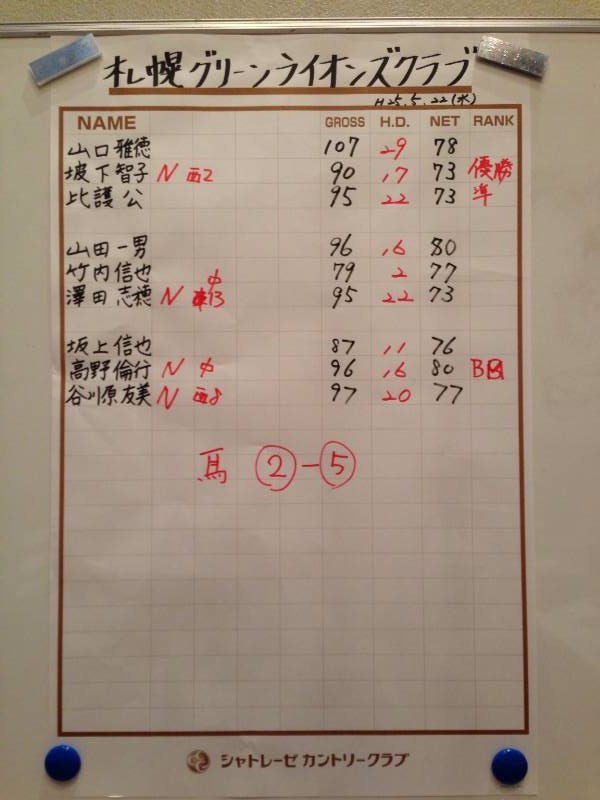 札幌グリーンライオンズクラブ
H25.5.22(水)
NAME GROSS H.D. NET RANK
山口雅徳 107 29 78
坡下智子 N 西2 90 17 73 優勝
比護公 95 22 73 準
山田一男 96 16 80
竹内信也 79 2 77
澤田志穂 N 中 13 95 22 73
坂上信也 87 11 76
高野倫行 N 中 96 16 80 B
谷川原友美 N 西8 97 20 77
馬 ②-⑤
シャトレーゼ カントリークラブ